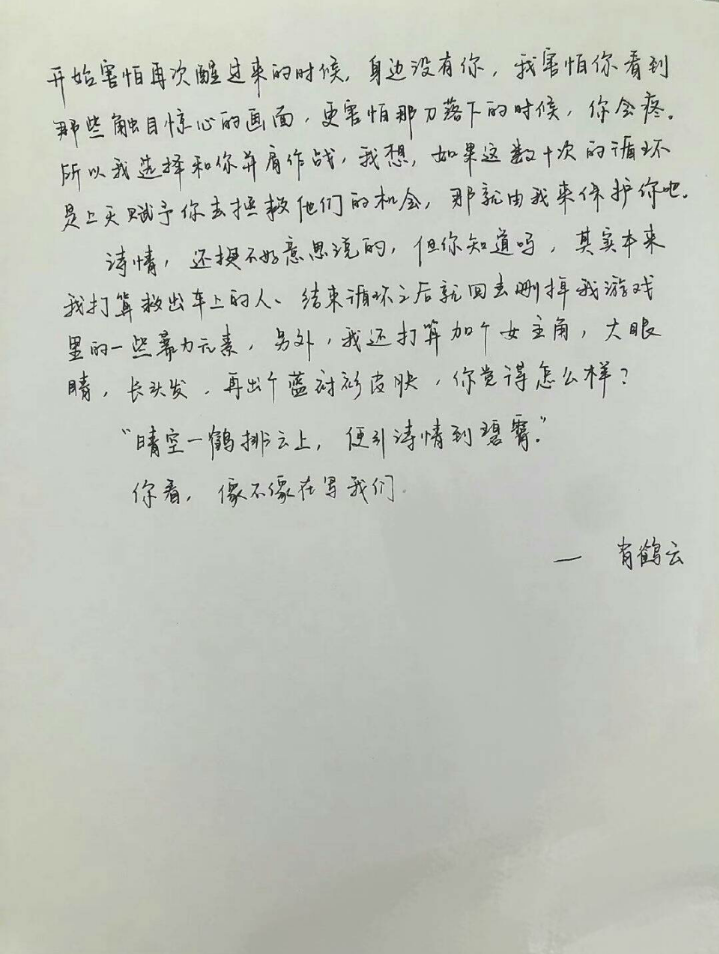 开始害怕再次醒过来的时候，身边没有你，我害怕你看到
那些触目惊心的画面，更害怕那刀落下的时候，你会疼。
所以我选择和你并肩作战，我想，如果这数十次的循环
是上天赋予你去拯救他们的机会，那就由我来保护你吧。
诗情，还挺不好意思说的，但你知道吗，其实本来
我打算救出车上的人、结束循环之后就回去删掉我游戏
里的一些暴力元素，另外，我还打算加个女主角，大眼
睛，长头发，再出个蓝衬衫皮肤，你觉得怎么样？
“晴空一鹤排云上，便引诗情到碧霄。”
你看，像不像在写我们.
— 肖鹤云